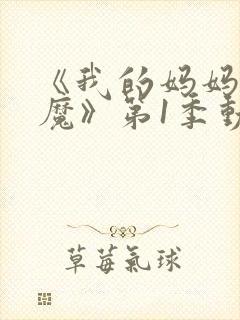 《我的妈妈
魔》第1季動
草莓氣球